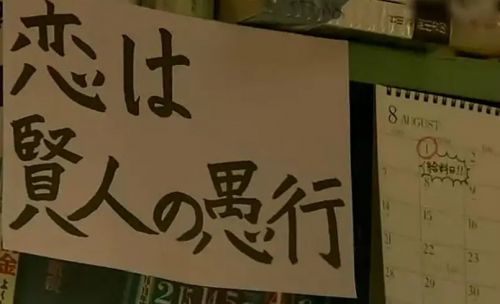 恋は
賢人の愚行
8 AUGUST
1
2
給料日!!
7
8
9
14
15
16
21
22
23
28
29
30